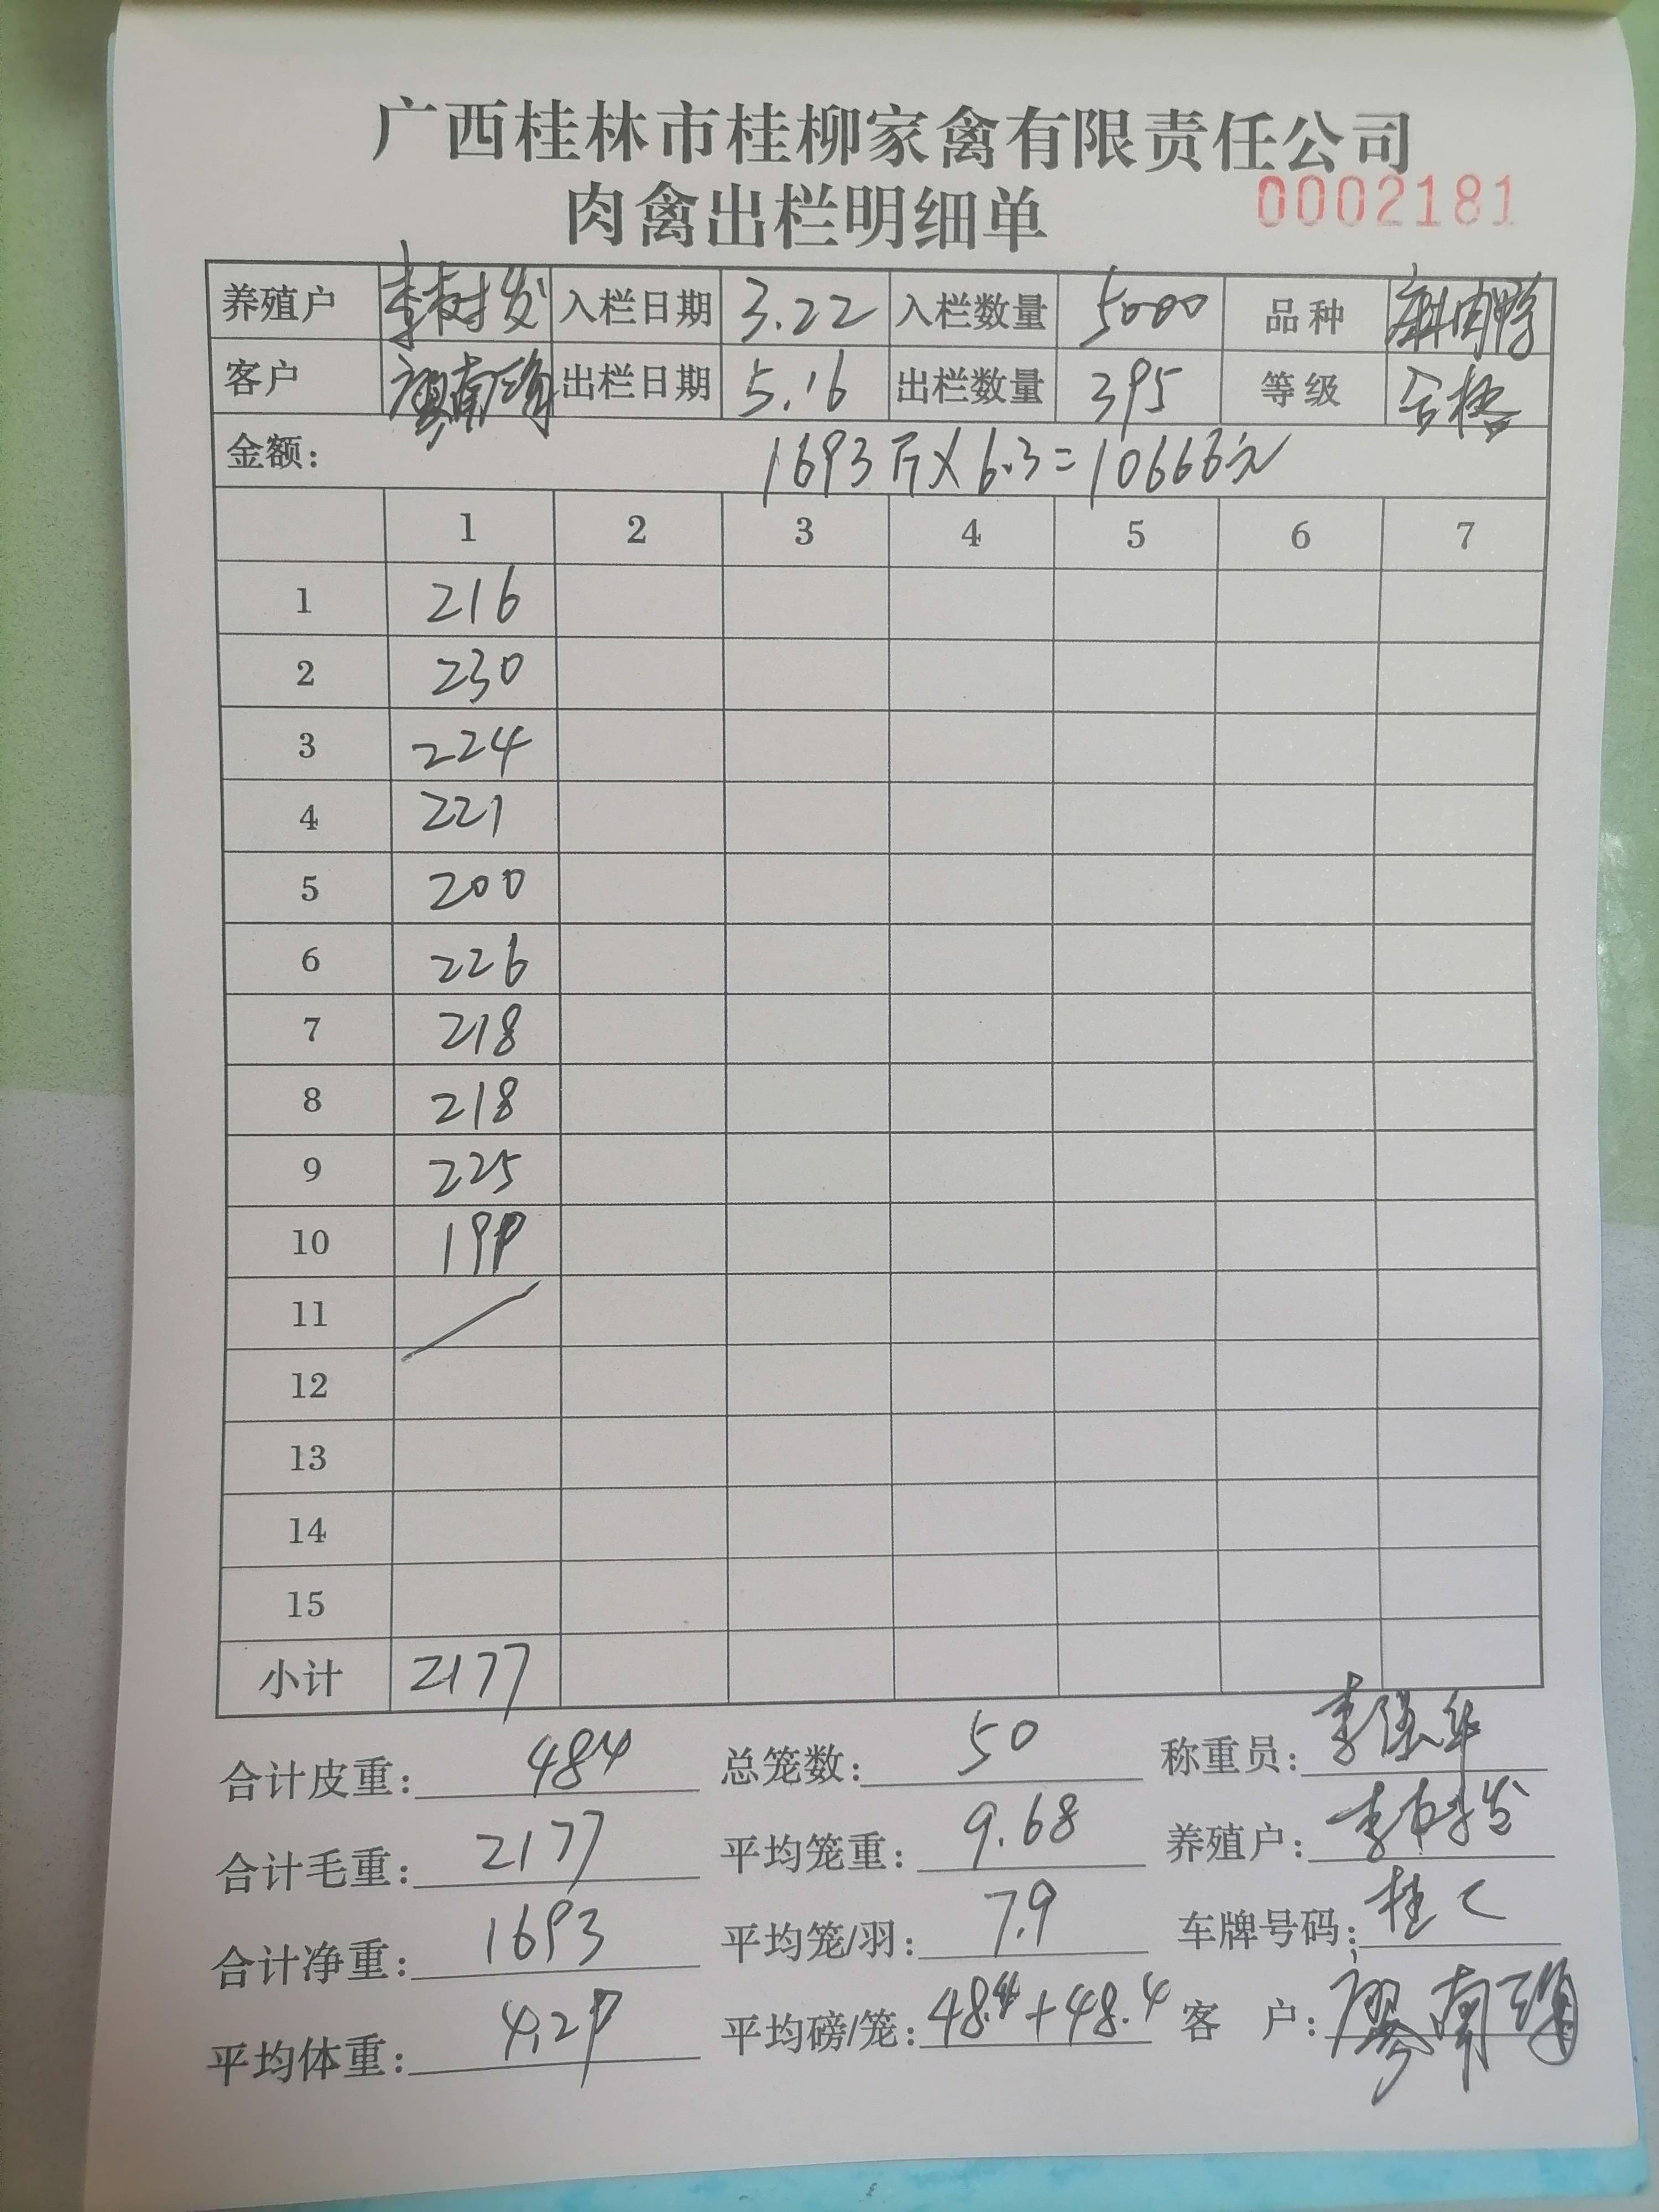 广西桂林市桂柳家禽有限责任公司
肉禽出栏明细单 0002181
养殖户 李树发 入栏日期 3.22 入栏数量 5000 品种 麻肉鸭
客户 廖南 出栏日期 5.16 出栏数量 395 等级 合格
金额: 1693斤×6.3=10666元
1 2 3 4 5 6 7
1 216
2 230
3 224
4 221
5 200
6 226
7 218
8 218
9 225
10 199
11
12
13
14
15
小计 2177
合计皮重: 484 总笼数: 50 称重员: 李
合计毛重: 2177 平均笼重: 9.68 养殖户: 李树发
合计净重: 1693 平均笼/羽: 7.9 车牌号码: 桂C
平均体重: 4.29 平均磅/笼: 48.4+48.4 客户: 廖南